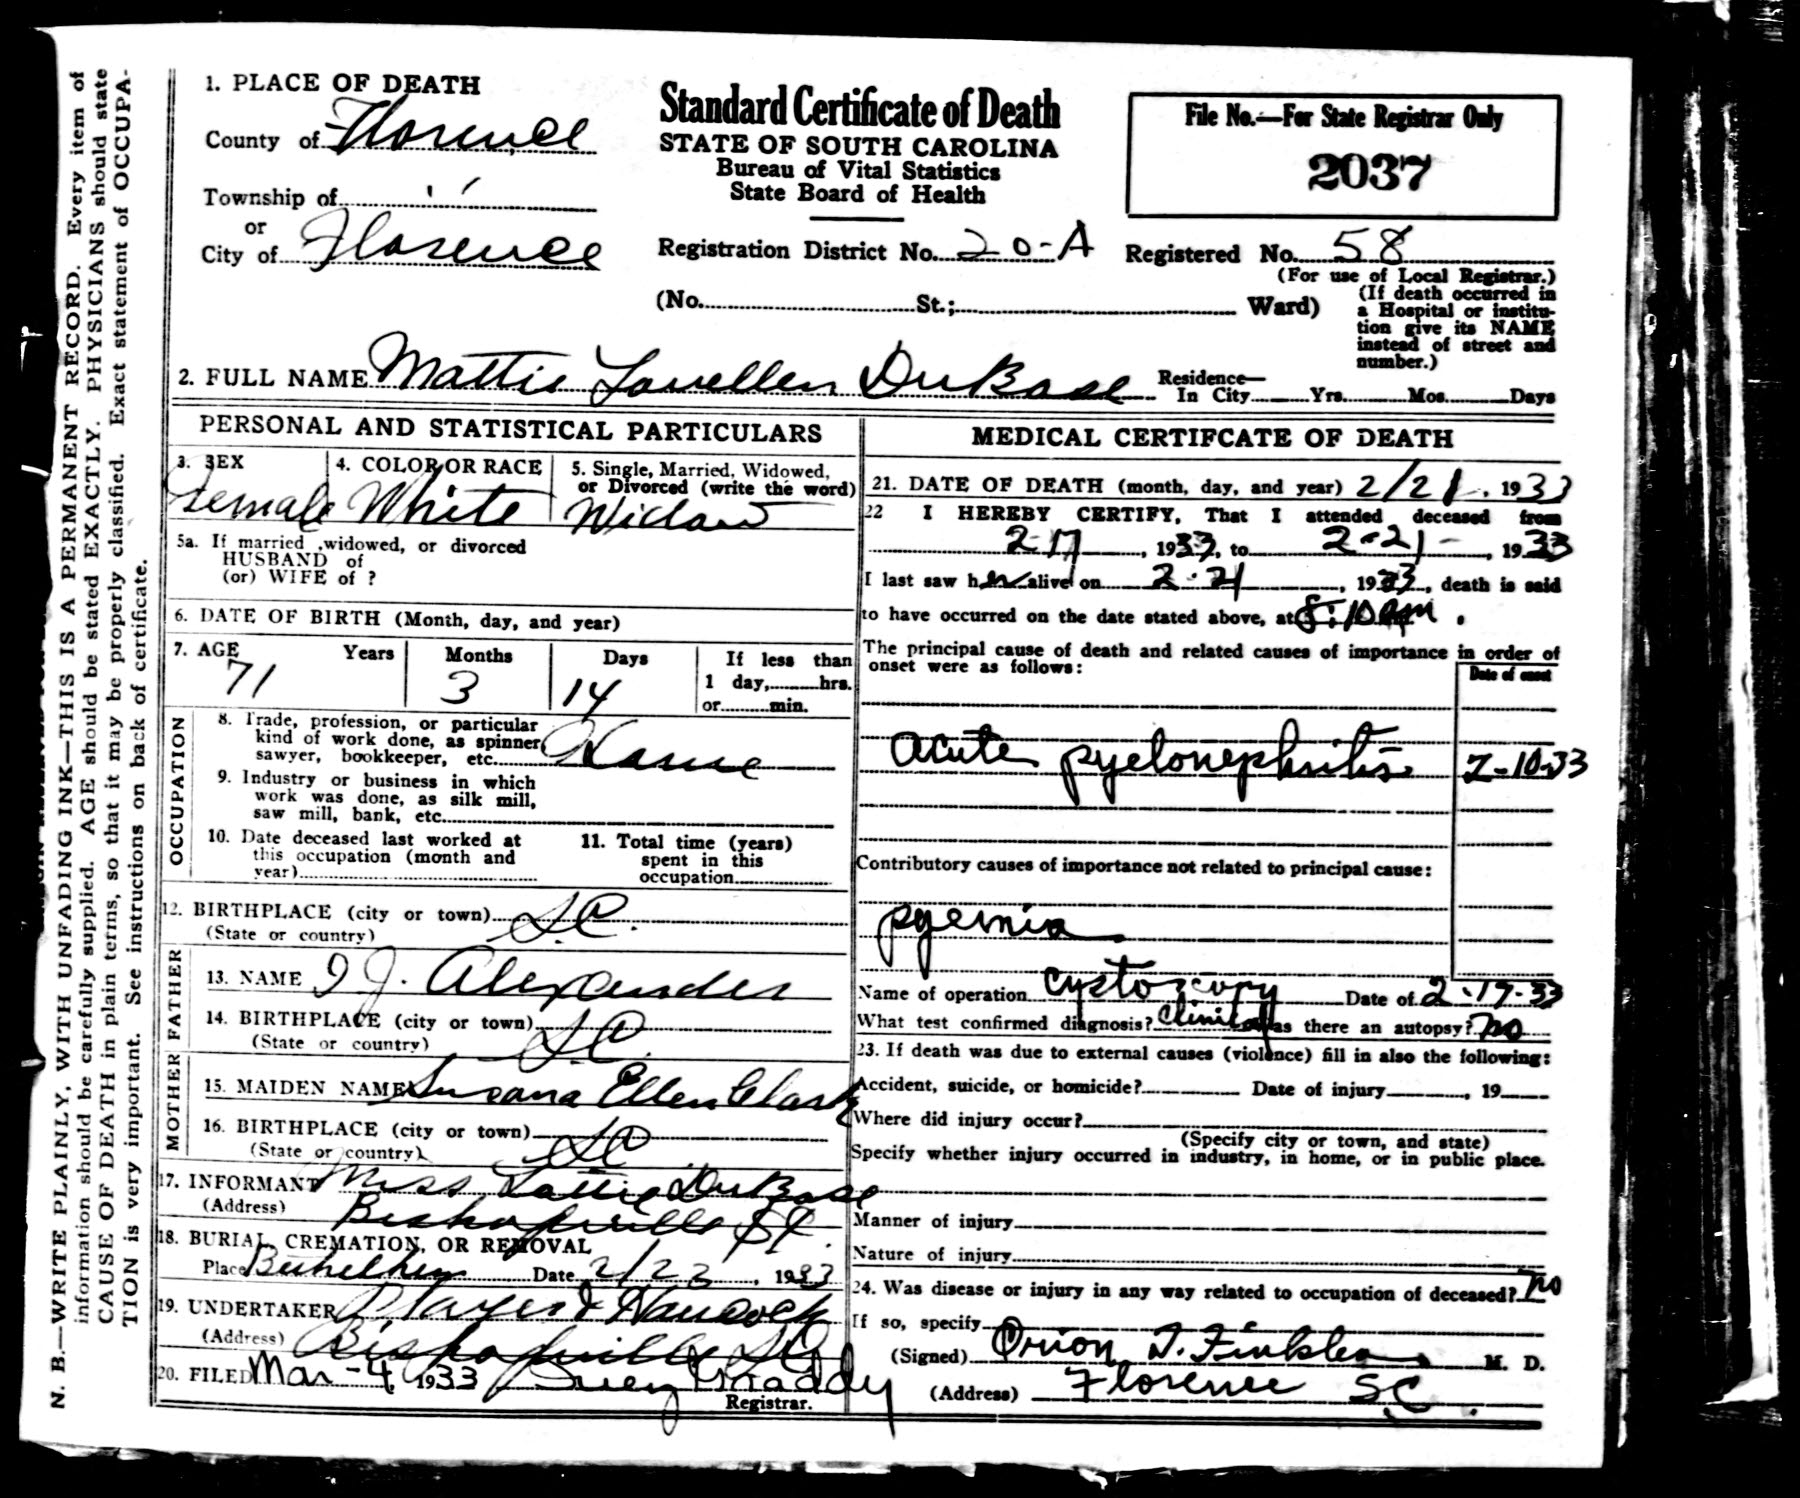 N. B.—WRITE PLAINLY, WITH UNFADING INK—THIS IS A PERMANENT RECORD. Every item of
information should be carefully supplied. AGE should be stated EXACTLY. PHYSICIANS should state
CAUSE OF DEATH in plain terms, so that it may be properly classified. Exact statement of OCCUPA-
TION is very important. See instructions on back of certificate.
1. PLACE OF DEATH
County of Florence
Township of "
or
City of Florence
Standard Certificate of Death
STATE OF SOUTH CAROLINA
Bureau of Vital Statistics
State Board of Health
File No.—For State Registrar Only
2037
Registration District No. 20-A Registered No. 58
(For use of Local Registrar.)
(No. St.; Ward)
(If death occurred in
a Hospital or institu-
tion give its NAME
instead of street and
number.)
2. FULL NAME Mattie Louellen DuBose
Residence—
In City Yrs. Mos. Days
PERSONAL AND STATISTICAL PARTICULARS
3. SEX
Female
4. COLOR OR RACE
White
5. Single, Married, Widowed,
or Divorced (write the word)
Widow
5a. If married ,widowed, or divorced
HUSBAND of
(or) WIFE of ?
6. DATE OF BIRTH (Month, day, and year)
7. AGE Years Months Days If less than
71 3 14 1 day, hrs.
or min.
OCCUPATION
8. Trade, profession, or particular
kind of work done, as spinner
sawyer, bookkeeper, etc.
9. Industry or business in which
work was done, as silk mill,
saw mill, bank, etc.
10. Date deceased last worked at
this occupation (month and
year)
11. Total time (years)
spent in this
occupation
12. BIRTHPLACE (city or town) S.C.
(State or country)
FATHER
13. NAME J. Alexander
14. BIRTHPLACE (city or town) S.C.
(State or country)
MOTHER
15. MAIDEN NAME Susana Ellen Clark
16. BIRTHPLACE (city or town) SC
(State or country)
17. INFORMANT Miss Lottie DuBose
(Address) Bishopville SC.
18. BURIAL, CREMATION, OR REMOVAL
Place Date 2/23, 1933
19. UNDERTAKER & Hancock
(Address) Bishopville SC
20. FILED Mar-4, 1933 Gladdy
Registrar.
MEDICAL CERTIFCATE OF DEATH
21. DATE OF DEATH (month, day, and year) 2/21, 1933
22 I HEREBY CERTIFY, That I attended deceased from
2-17, 1933, to 2-21-, 1933
I last saw her alive on 2-21, 1933, death is said
to have occurred on the date stated above, at 8:10 m.
The principal cause of death and related causes of importance in order of
onset were as follows:
Date of onset
acute pyelonephritis 2-10-33
Contributory causes of importance not related to principal cause:
pyemia
Name of operation cystoscopy Date of 2-17-33
What test confirmed diagnosis? Clinical as there an autopsy? no
23. If death was due to external causes (violence) fill in also the following:
Accident, suicide, or homicide? Date of injury, 19
Where did injury occur?
(Specify city or town, and state)
Specify whether injury occurred in industry, in home, or in public place.
Manner of injury
Nature of injury
24. Was disease or injury in any way related to occupation of deceased? no
If so, specify
(Signed) Orion T. Finklea M. D.
(Address) Florence SC.